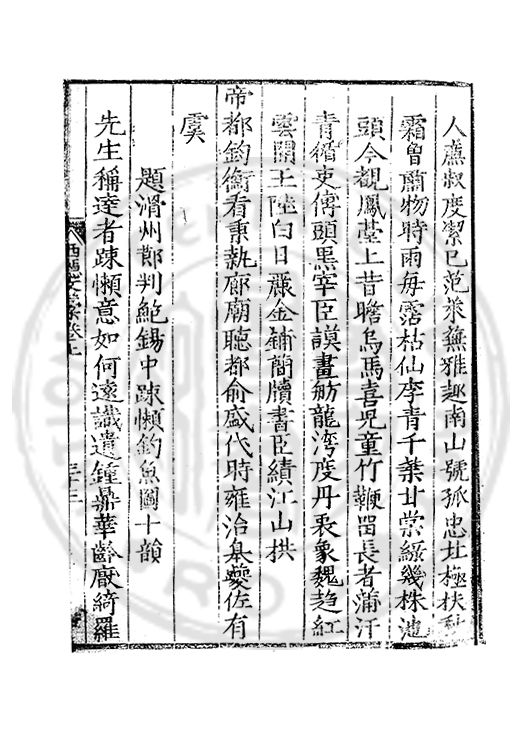 人廉叔度潔巳范萊蕪雅趣南山號孤忠北極扶秋
霜曽肅物時雨每霑枯仙李青千葉甘棠綬幾株池
頭今覩鳳臺上昔瞻烏馬喜児童竹鞭畱長者蒲汗
青循吏傳頭黒宰臣謨畫舫龍灣度丹衷象魏趋紅
雲開玉陛白日麗金鋪簡牘書臣績江山拱
帝都鈞衡看秉執廊廟聴都俞盛代時雍治皐夔佐有
虞
題滑州鄭判鮑錫中踈懶釣魚圖十韻
先生稱達者踈懶意如何遠識遺鍾鼎華齡厭綺羅
卷上
三十三